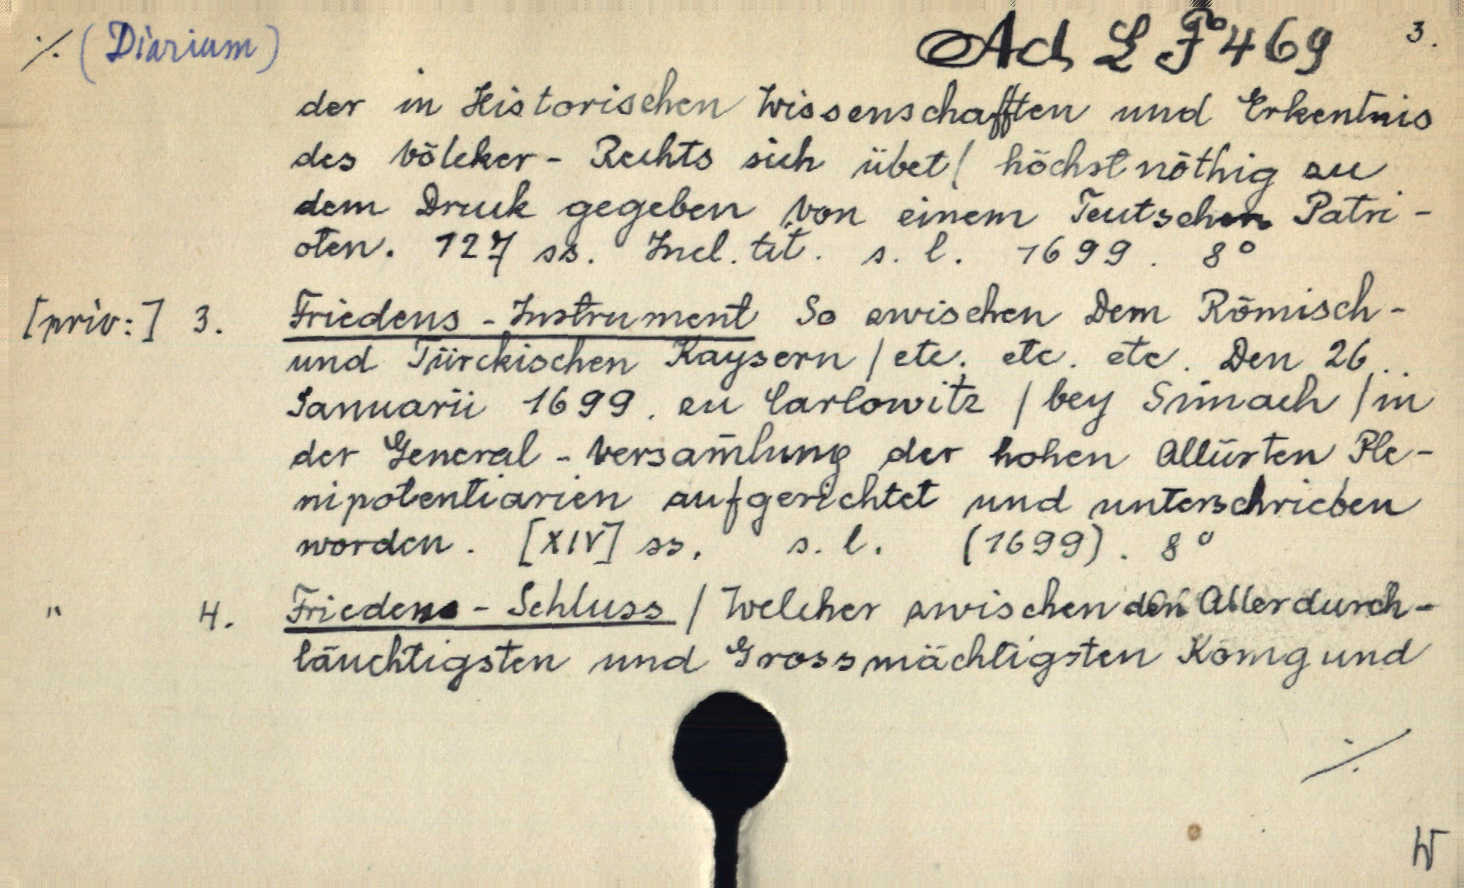 ·/. (Diarium) Ad L F° 469 3.
der in Historischen Wissenschafften und Erkentnis
des Völcker - Rechts sich übet / höchst nöthig zu
dem Druck gegeben von einem Teutschen Patri -
oten. 127 ss. Incl. tit. s. l. 1699. 8°
[priv:] 3. Friedens - Instrument So zwischen Dem Römisch -
und Türckischen Kaysern / etc. etc. etc. Den 26..
Januarii 1699. zu Carlowitz / bey Simach / in
der General - Versam̄lung der hohen Allürten Ple -
nipotentiarien aufgerichtet und unterschrieben
worden. [XIV] ss. s. l. (1699). 8°
" 4. Friedens - Schluss / Welcher zwischen den Allerdurch -
läuchtigsten und Grossmächtigsten König und
·/.
W